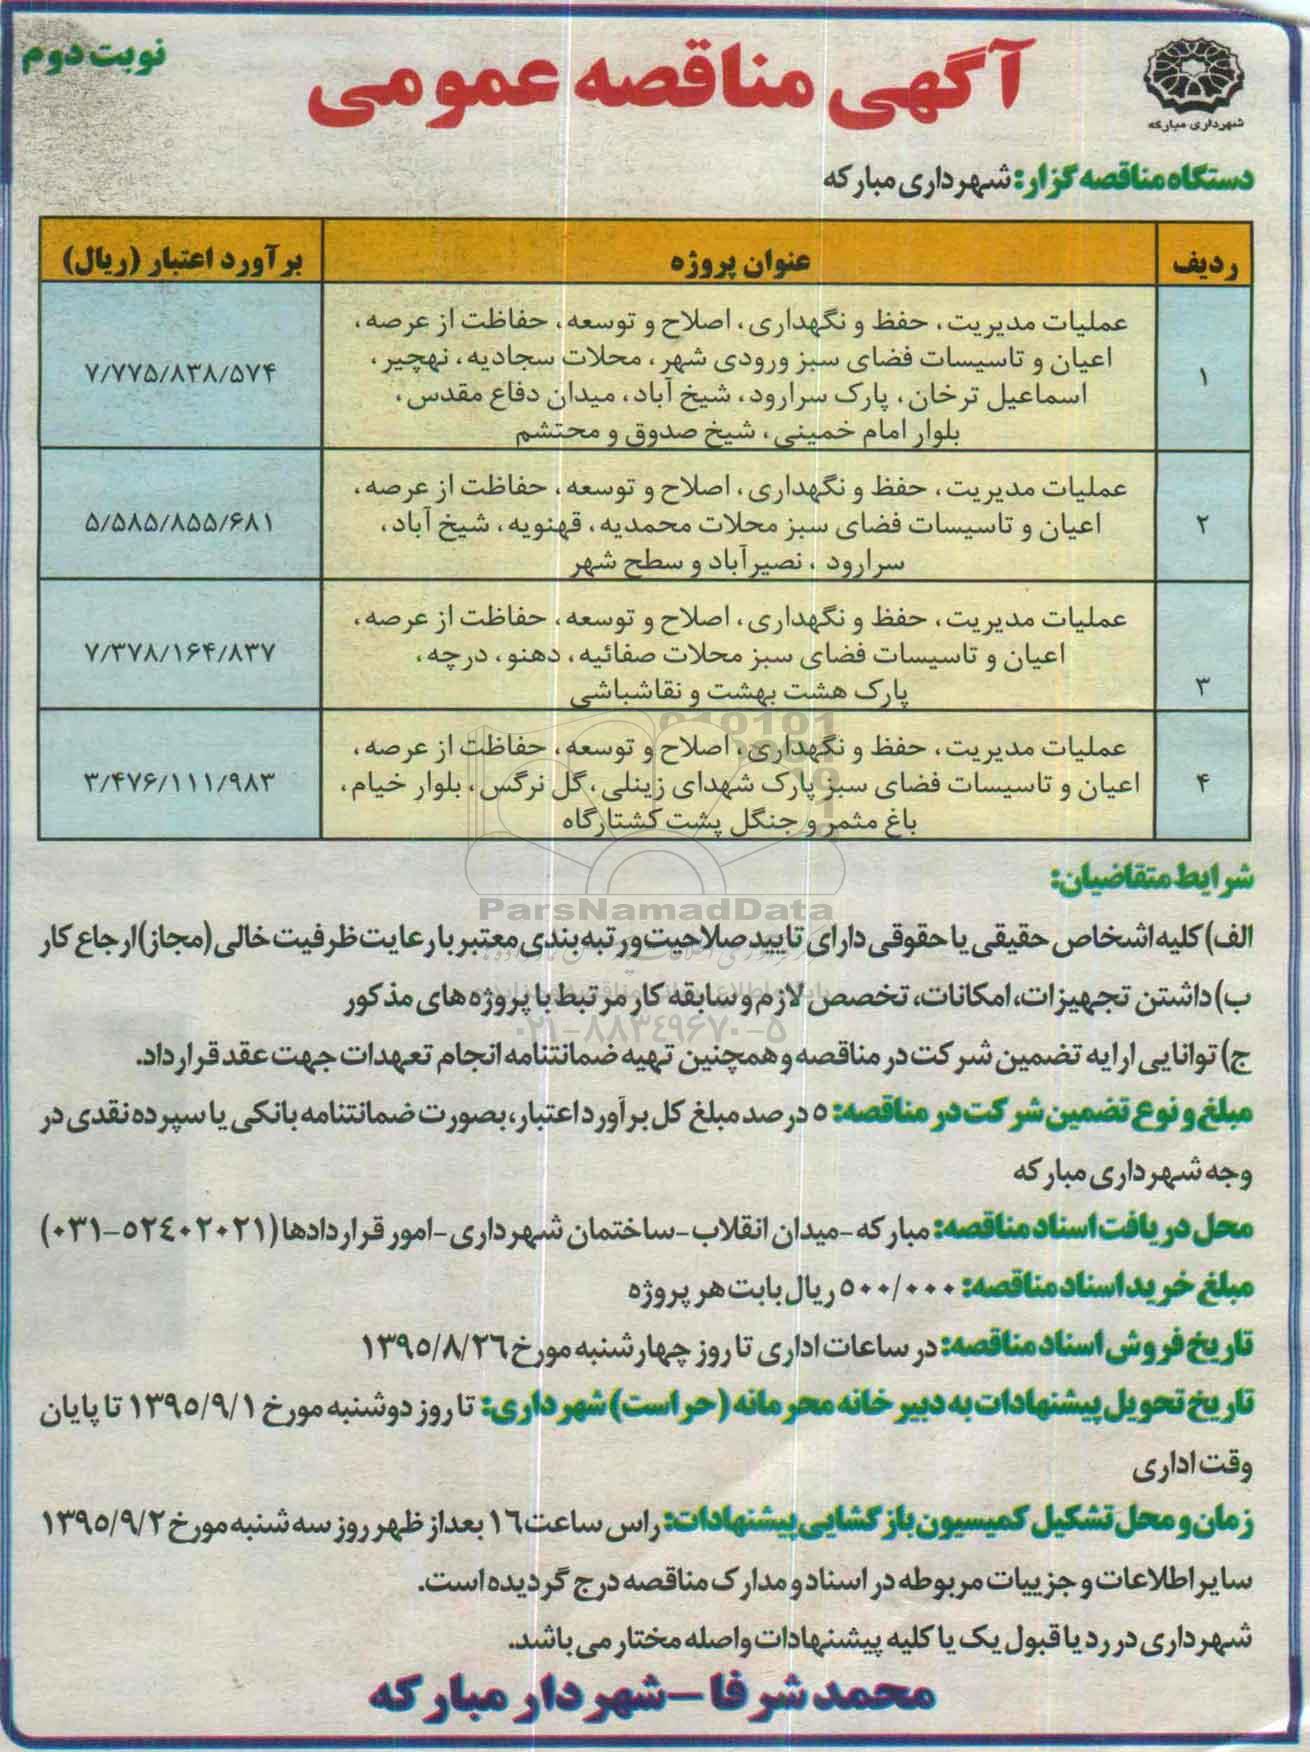 نوبت دوم
آگهی مناقصه عمومی
شهرداری مبارکه
دستگاه مناقصه گزار: شهرداری مبارکه
ردیف عنوان پروژه برآورد اعتبار (ریال)
عملیات مدیریت، حفظ و نگهداری، اصلاح و توسعه، حفاظت از عرصه،
اعیان و تاسیسات فضای سبز ورودی شهر، محلات سجادیه، نهچیر،
۱ ۷/۷۷۵/۸۳۸/۵۷۴
اسماعیل ترخان، پارک سرارود، شیخ آباد، میدان دفاع مقدس،
بلوار امام خمینی، شیخ صدوق و محتشم
عملیات مدیریت، حفظ و نگهداری، اصلاح و توسعه، حفاظت از عرصه،
۲ اعیان و تاسیسات فضای سبز محلات محمدیه، قهنویه، شیخ آباد، ۵/۵۸۵/۸۵۵/۶۸۱
سرارود ، نصیرآباد و سطح شهر
عملیات مدیریت، حفظ و نگهداری، اصلاح و توسعه، حفاظت از عرصه،
اعیان و تاسیسات فضای سبز محلات صفائیه، دهنو، درچه، ۷/۳۷۸/۱۶۴/۸۳۷
۳ پارک هشت بهشت و نقاشباشی
عملیات مدیریت، حفظ و نگهداری، اصلاح و توسعه، حفاظت از عرصه،
۴ اعیان و تاسیسات فضای سبز پارک شهدای زینلی، گل نرگس، بلوار خیام، ۳/۴۷۶/۱۱۱/۹۸۳
باغ مثمر و جنگل پشت کشتارگاه
شرایط متقاضیان:
ParsNamadData
الف) کلیه اشخاص حقیقی یا حقوقی دارای تایید صلاحیت و رتبه بندی معتبر با رعایت ظرفیت خالی (مجاز) ارجاع کار
ب) داشتن تجهیزات، امکانات، تخصص لازم و سابقه کار مرتبط با پروژه های مذکور
۰۲۱-۸۸۳۴۹۶۷۰-۵
ج) توانایی ارایه تضمین شرکت در مناقصه و همچنین تهیه ضمانتنامه انجام تعهدات جهت عقد قرارداد.
مبلغ و نوع تضمین شرکت در مناقصه: ۵ درصد مبلغ کل برآورد اعتبار، بصورت ضمانتنامه بانکی یا سپرده نقدی در
وجه شهرداری مبارکه
محل دریافت اسناد مناقصه: مبارکه -میدان انقلاب -ساختمان شهرداری -امور قراردادها (۵۲۴۰۲۰۲۱-۰۳۱)
مبلغ خرید اسناد مناقصه: ۵۰۰/۰۰۰ ریال بابت هر پروژه
تاریخ فروش اسناد مناقصه: در ساعات اداری تا روز چهارشنبه مورخ ۱۳۹۵/۸/۲۶
تاریخ تحویل پیشنهادات به دبیرخانه محرمانه (حراست) شهرداری: تا روز دوشنبه مورخ ۱۳۹۵/۹/۱ تا پایان
وقت اداری
زمان و محل تشکیل کمیسیون بازگشایی پیشنهادات: راس ساعت ۱۶ بعداز ظهر روز سه شنبه مورخ ۱۳۹۵/۹/۲
سایر اطلاعات و جزییات مربوطه در اسناد و مدارک مناقصه درج گردیده است.
شهرداری در رد یا قبول یک یا کلیه پیشنهادات واصله مختار می باشد.
محمد شرفا - شهردار مبارکه